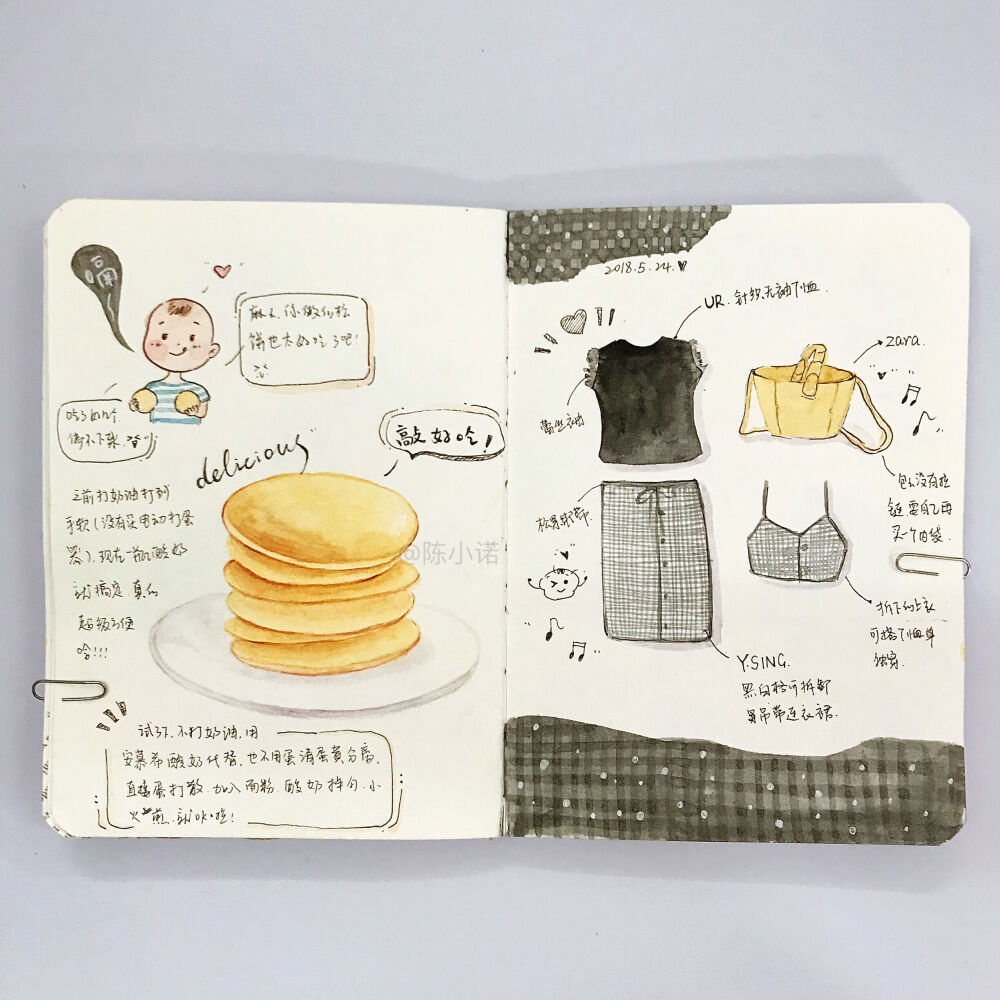 麻麻,你做的松
饼也太好吃了吧!
吃了好几个,
停不下来
敲好吃!
delicious
之前打奶油打到
手软(没有买电动打蛋
器).现在一瓶酸奶
就搞定.真的
超级方便
哈!!!
@陈小诺
试了下.不打奶油.用
安慕希酸奶代替.也不用蛋清蛋黄分离.
直接蛋打散.加入面粉.酸奶拌匀.小
火煎.就OK啦!
2018.5.24.
UR.针织无袖T恤.
蕾丝袖
zara.
包包没有拉
链.要自己再
买一个内袋.
松紧绑带.
拆下的上衣
可搭T恤单
独穿.
Y.SING.
黑白格可拆卸
吊带连衣裙.